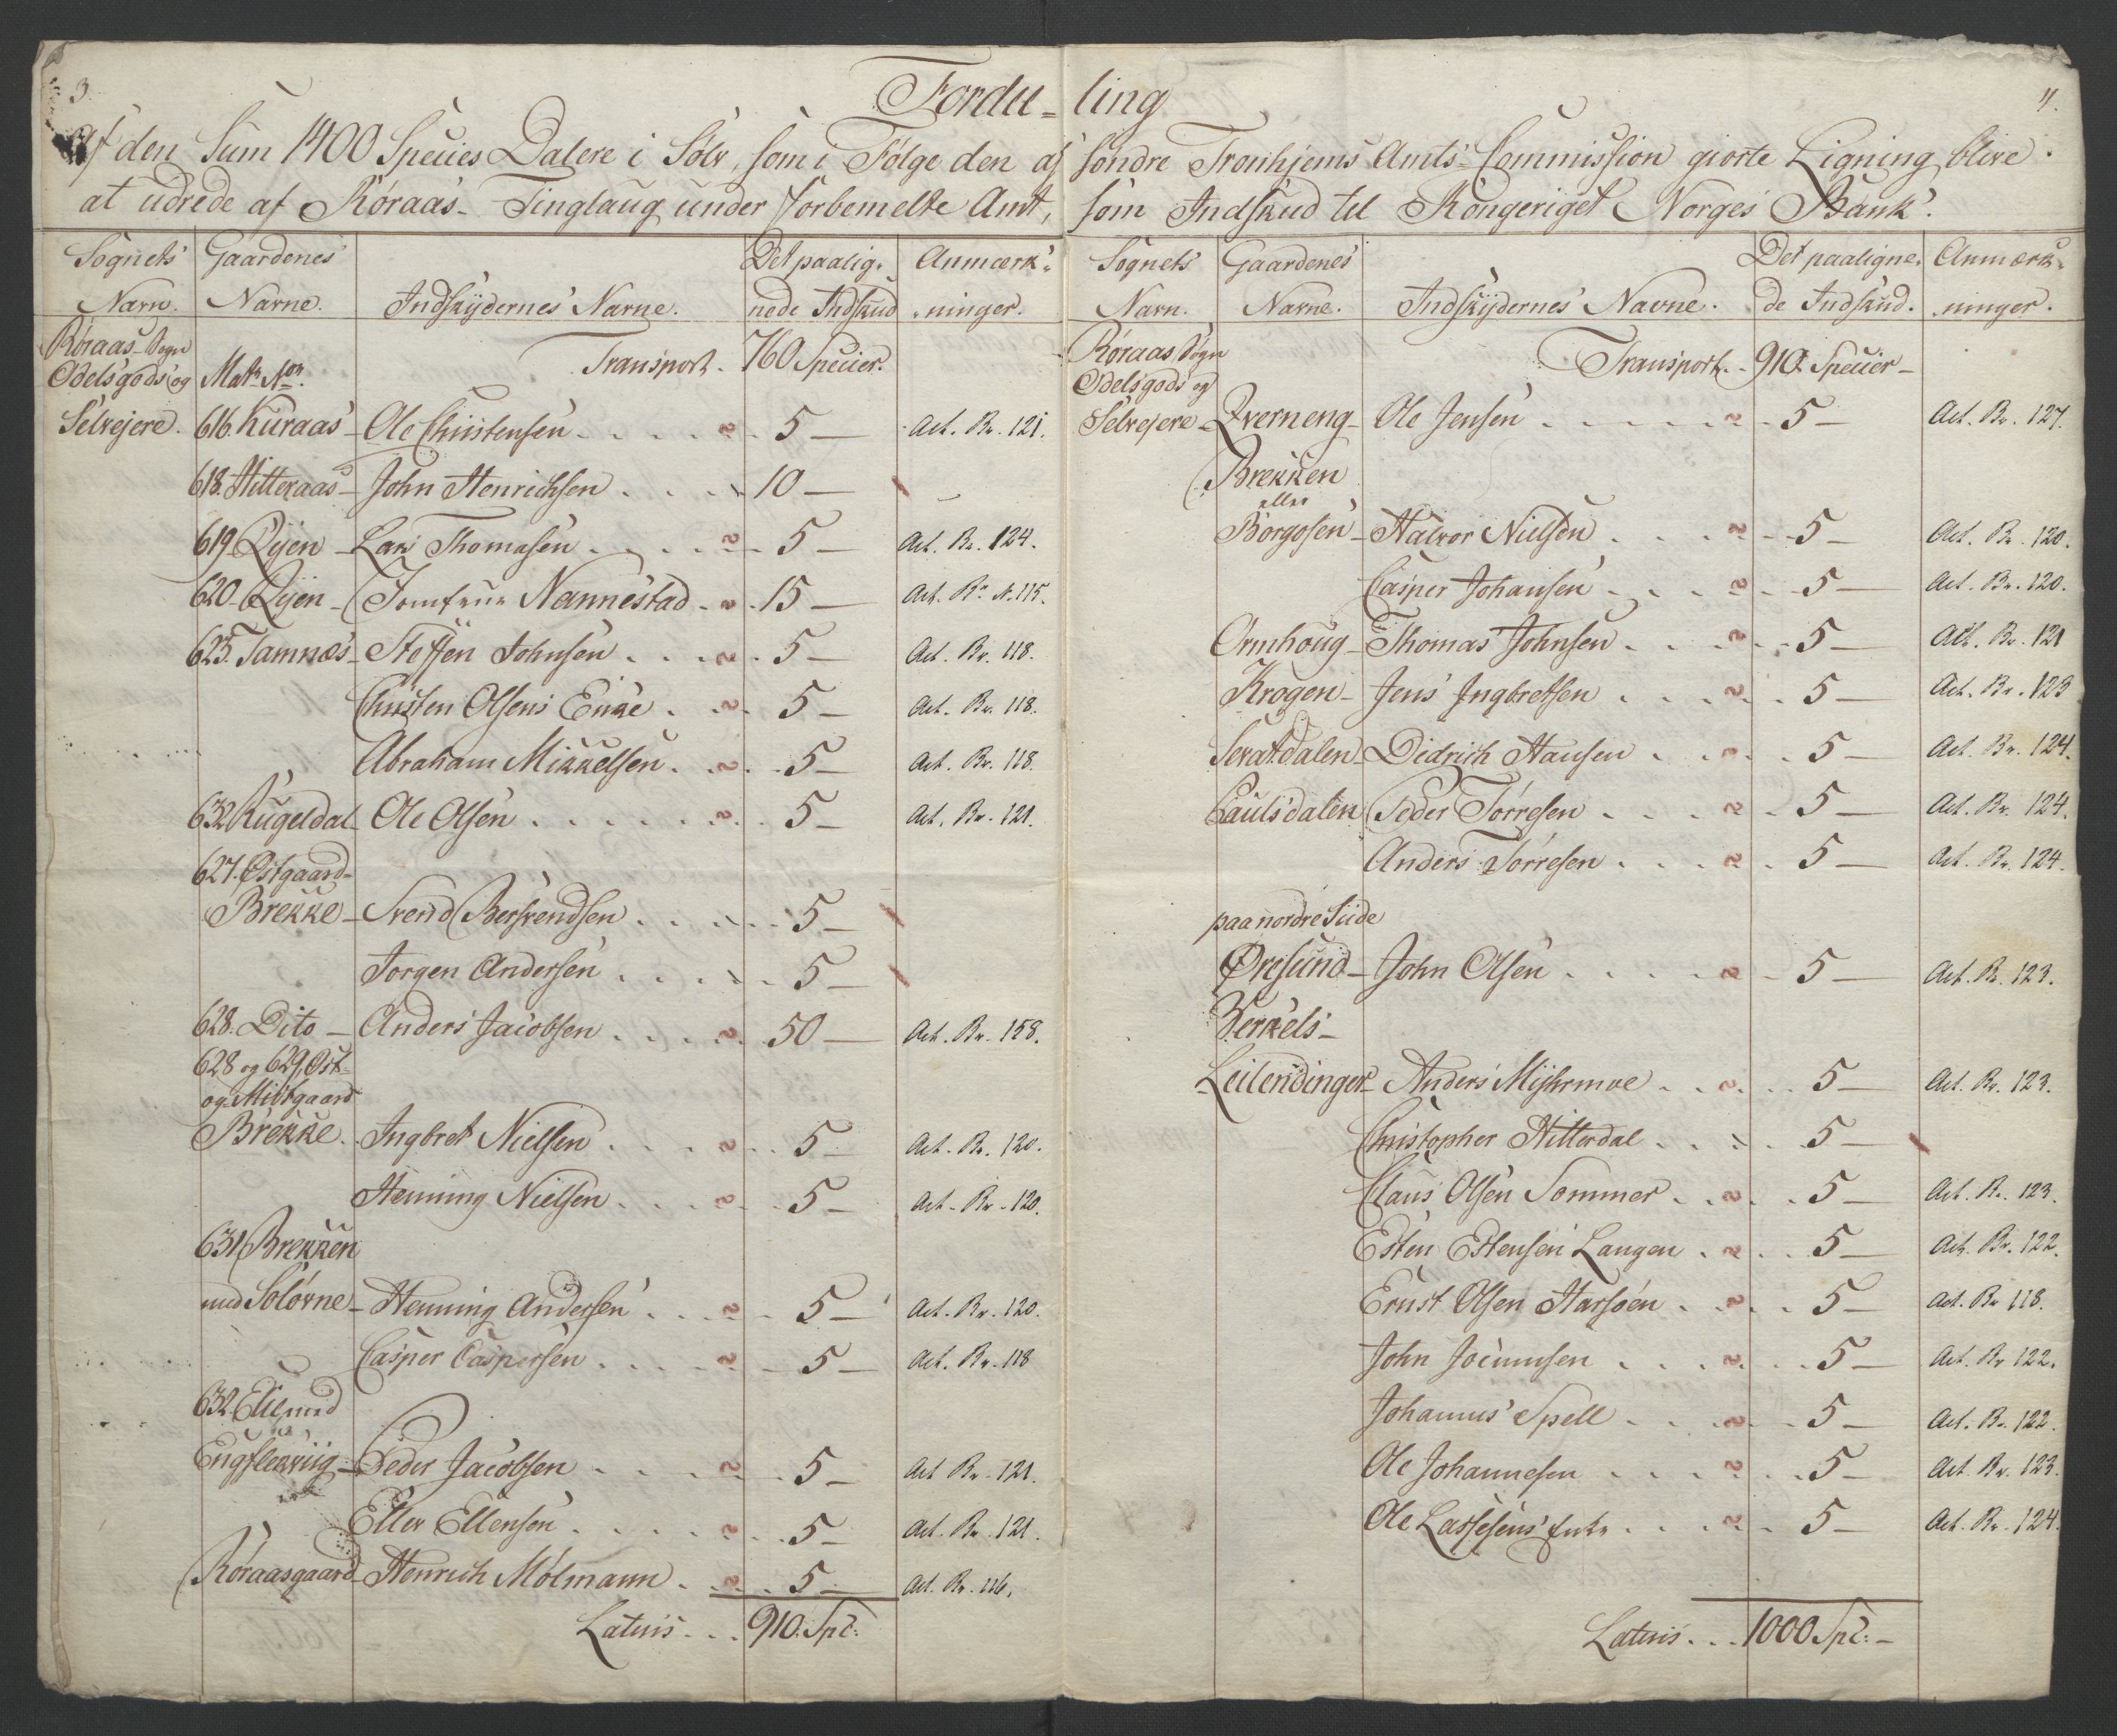 3.
4.
Fordee-ling
Af den Sum 1400 Species Dalere i Sølv, som i Følge den af søndre Tronhjems Amts-Commission giorte Ligning blive
at udrede af Røraas-Tinglaug under forbemelte Amt, som Indskud til Kongeriget Norges Bank.
Sognets Navn. Gaardenes Navne. Indskydernes Navne. Det paalig-nede Indskud Anmærk-ninger.
Røraas-Sogn Transport. 760 Specier.
Odelsgods og Matr. Nor.
Selvejere. 616. Kuraas - Ole Christensen 5 - Act. Br. 121.
618. Hitteraas - John Henrichsen 10 -
619. Øyen - Lars Thomasen 5 - Act. Br. 124.
620. Øyen - Jomfrue Nannestad 15 - Act. Br. N. 115.
625. Tamnæs - Steffen Johnsen 5 - Act. Br. 118.
Christen Olsens Enke 5 - Act. Br. 118.
Abraham Mikkelsen 5 - Act. Br. 118.
632 Kugeldal - Ole Olsen 5 - Act. Br. 121.
627. Østgaard-
Brekke - Svend Bersvendsen 5 -
Jørgen Andersen 5 -
628. Dito - Anders Jacobsen 50 - Act. Br. 158.
628 og 629, Øst-
og Mittgaard
Brekke. Ingbret Nielsen 5 Act. Br. 120.
Henning Nielsen 5 - Act. Br. 120.
631 Brekken
med Soløvne - Henning Andersen 5 - Act. Br. 120.
Casper Caspersen 5 - Act. Br. 118
632. med
Peder Jacobsen 5 - Act. Br. 121.
Eller Ellensen 5 - Act. Br. 121.
Røraasgaard - Henrich Mølmann 5 - Act. Br. 116.
Lateris 910. Spc:
Sognets Navn. Gaardenes Navne. Indskydernes Navne. Det paaligne-de Indskud. Anmærk-ninger.
Røraas Sogn Transport. 910. Specier -
Odelsgods og
Selvejere - Qverneng - Ole Jensen 5 - Act. Br. 127.
Brekken
eller
Borgosen - Halvor Nielsen 5 - Act. Br. 120.
Casper Johansen 5 - Act. Br. 120.
Ormhoug - Thomas Johnsen 5 - Act. Br. 121
Krogen - Jens Ingbretsen 5 - Act. Br. 123
Sevatdalen - Didrich Hansen 5 - Act. Br. 124.
Paulsdalen Peder Tørresen 5 - Act. Br. 124.
Anders Tørresen 5 - Act. Br. 124.
paa nordre Siide
Øresund - John Olsen 5 - Act. Br. 123.
Verkets-
Leilendinger - Anders Myhrmoe 5 - Act. Br. 123.
Christopher Hitterdal 5 -
Claus Olsen Sommer 5 - Act. Br. 123.
Esten Estensen Langen 5 - Act. Br. 122.
Ernst Olsen Harsøen 5 - Act. Br. 118.
John Jocumsen 5 - Act. Br. 122.
Johannes Spell 5 - Act. Br. 122.
Ole Johannesen 5 - Act. Br. 123.
Ole Lassesens Enke 5 - Act. Br. 124.
Lateris 1000 Spc: -